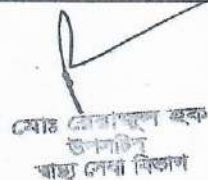 মোঃ রেরাজুল হক
উপসচিব
স্বাস্থ্য সেবা বিভাগ